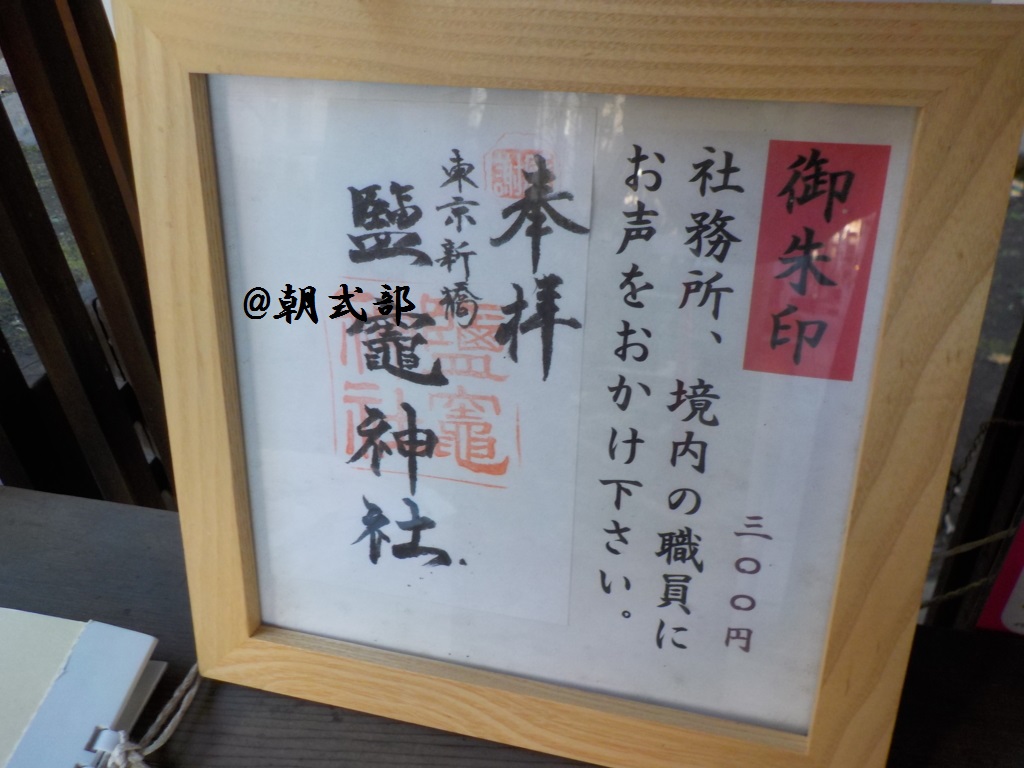 御朱印
三〇〇円
社務所、境内の職員に
お声をおかけ下さい。
奉拝
東京新橋
鹽竈神社
鹽竈
神社
@朝式部